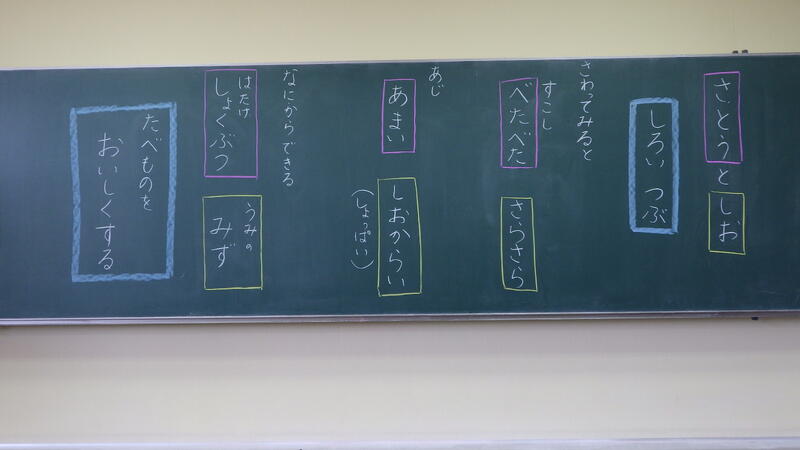 さとうとしお
しろいつぶ
さわってみると
すこし
べたべた
さらさら
あじ
あまい
しおからい
(しょっぱい)
なにからできる
はたけ
しょくぶつ
うみの
みず
たべものを
おいしくする